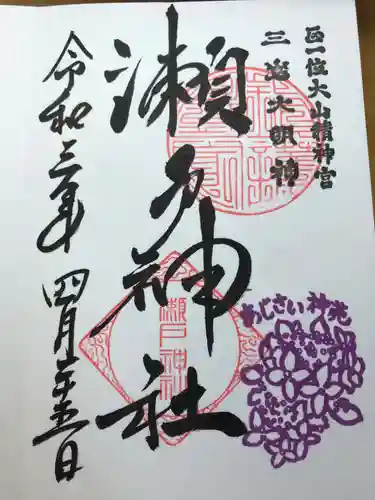 正一位大山積神宮
三嶋大明神
瀬戸神社
令和三年 四月二十五日
瀬戸神社
あじさい神苑